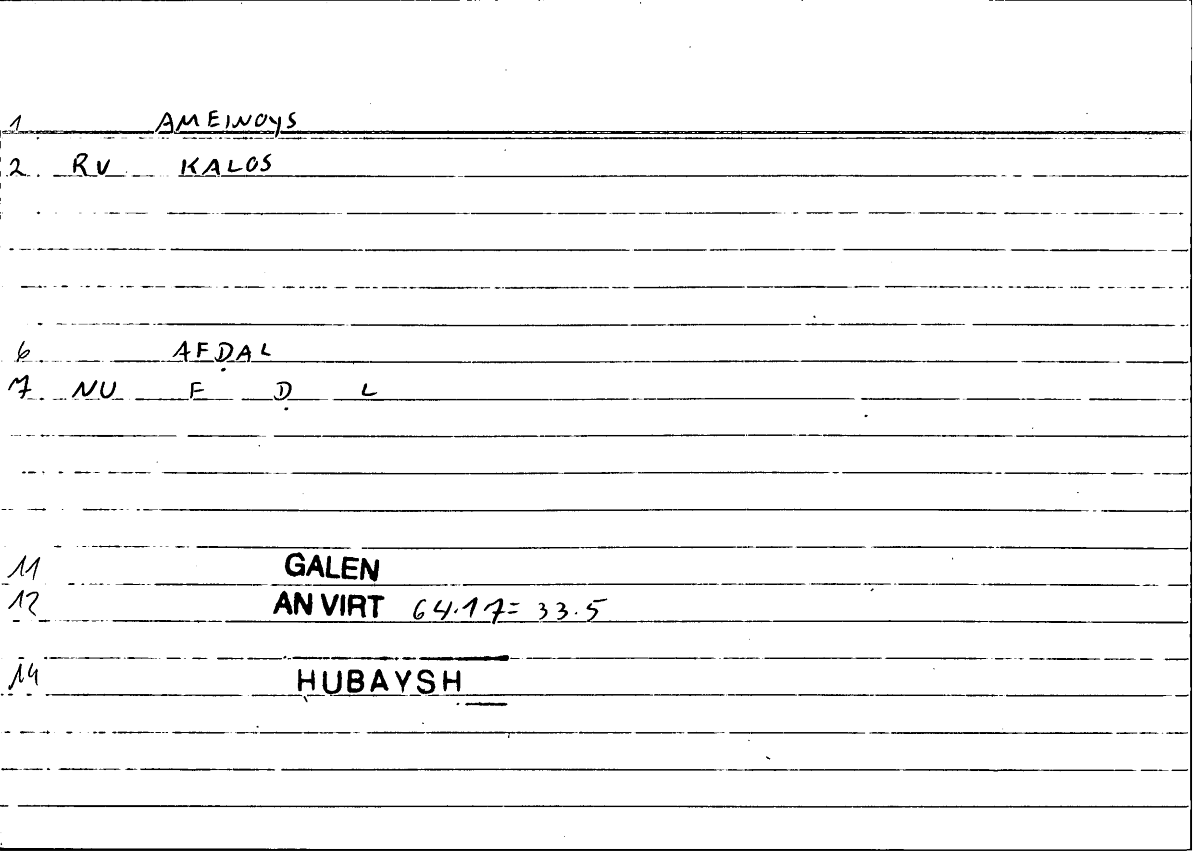 1 AMEINOYS
2. RV KALOS
6 AFḌAL
7. NU F Ḍ L
11 GALEN
12 AN VIRT 64.17= 33.5
14 HUBAYSH